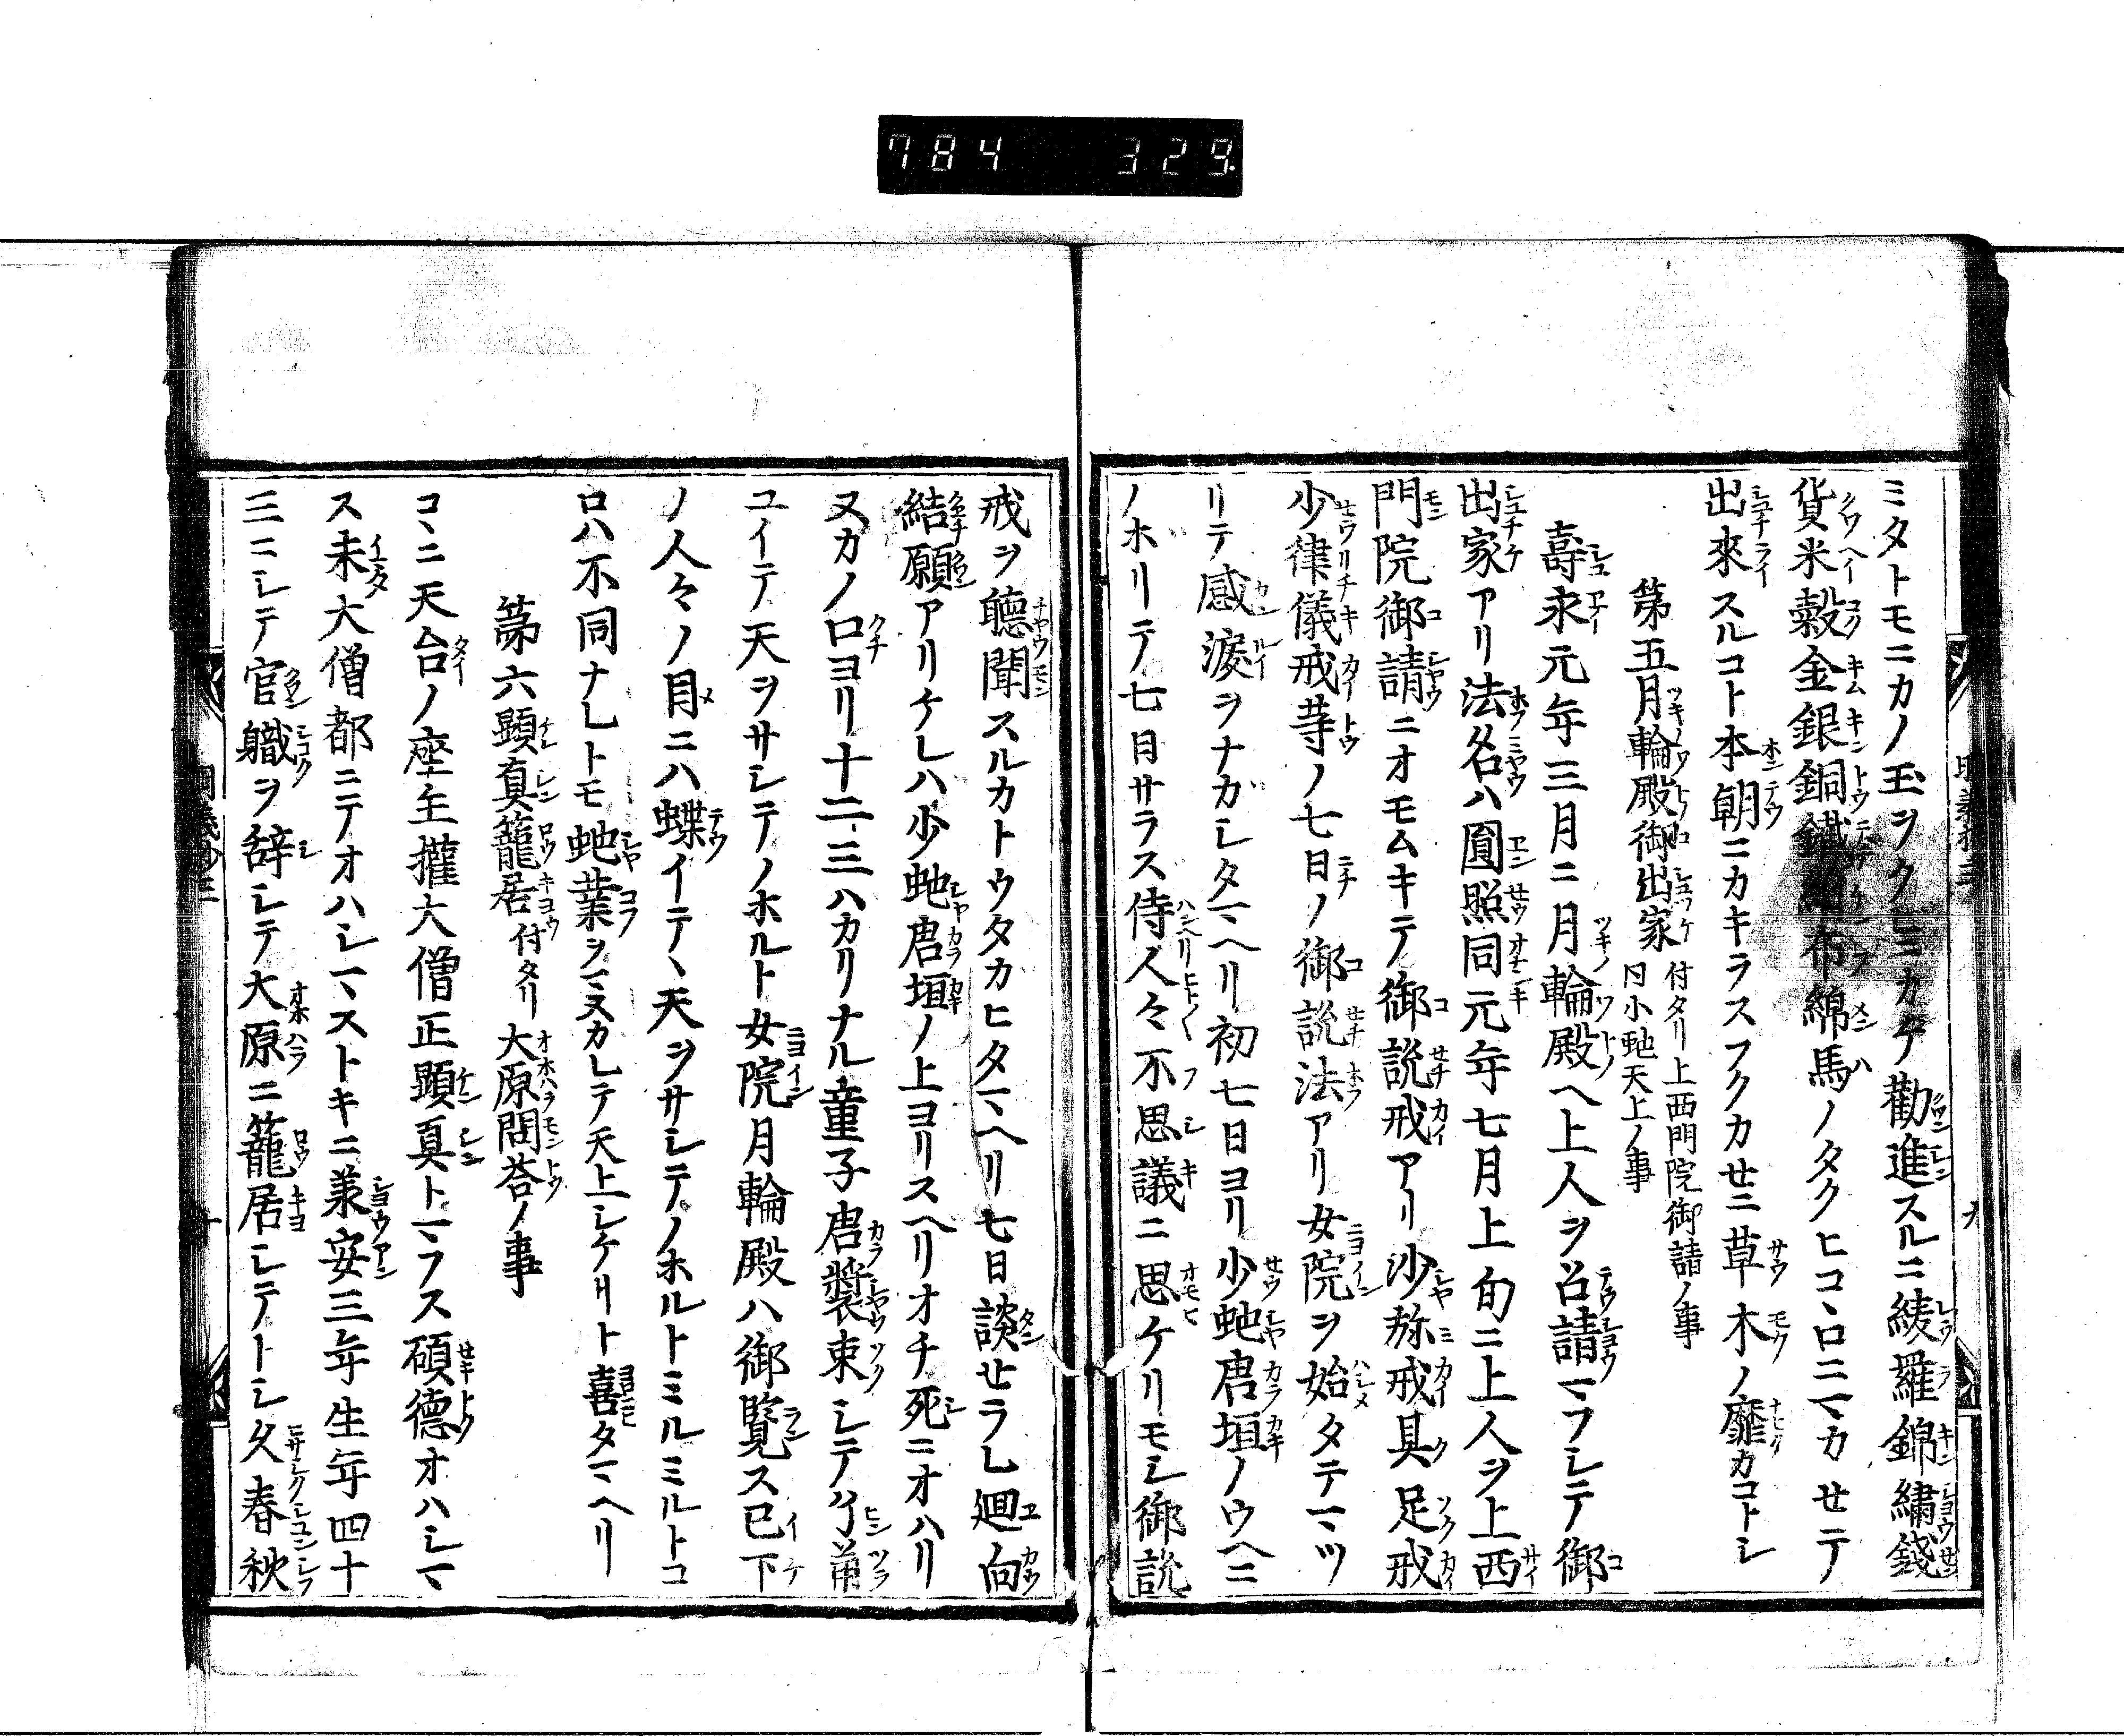 784 329
ミタトモニカノ玉ヲクヒミカキ勸進スルニ綾羅錦繍錢
貨米穀金銀銅鐵絹布綿馬ノタクヒコヽロニマカセテ
出來スルコト本朝ニカキラスフクカセニ草木ノ靡カコトシ
第五月輪殿御出家 付タリ上西門院御請ノ事
同小虵天上ノ事
壽永元年三月ニ月輪殿ヘ上人ヲ召請マフシテ御
出家アリ法名ハ圓照同元年七月上旬ニ上人ヲ上西
門院御請ニオモムキテ御説戒アリ沙弥戒具足戒
少律儀戒等ノ七日ノ御説法アリ女院ヲ始タテマツ
リテ感涙ヲナカシタマヘリ初七日ヨリ少虵唐垣ノウヘニ
ノホリテ七日サラス侍人々不思議ニ思ケリモシ御説
戒ヲ聽聞スルカトウタカヒタマヘリ七日談セラレ廻向
結願アリケレハ少虵唐垣ノ上ヨリスヘリオチ死ニオハリ
又カノ口ヨリ十二三ハカリナル童子唐裝束シテ
ユイテ天ヲサシテノホルト女院月輪殿ハ御覽ス已下
ノ人々ノ目ニハ蝶イテヽ天ヲサシテノホルトミルミルトコ
ロハ不同ナレトモ虵業ヲマヌカレテ天上シケリト喜タマヘリ
第六顕真籠居付タリ大原問荅ノ事
コヽニ天台ノ座主權大僧正顕真トマフス碩德オハシマ
ス未大僧都ニテオハシマストキニ承安三年生年四十
三ニシテ官職ヲ辞シテ大原ニ籠居シテトシ久春秋